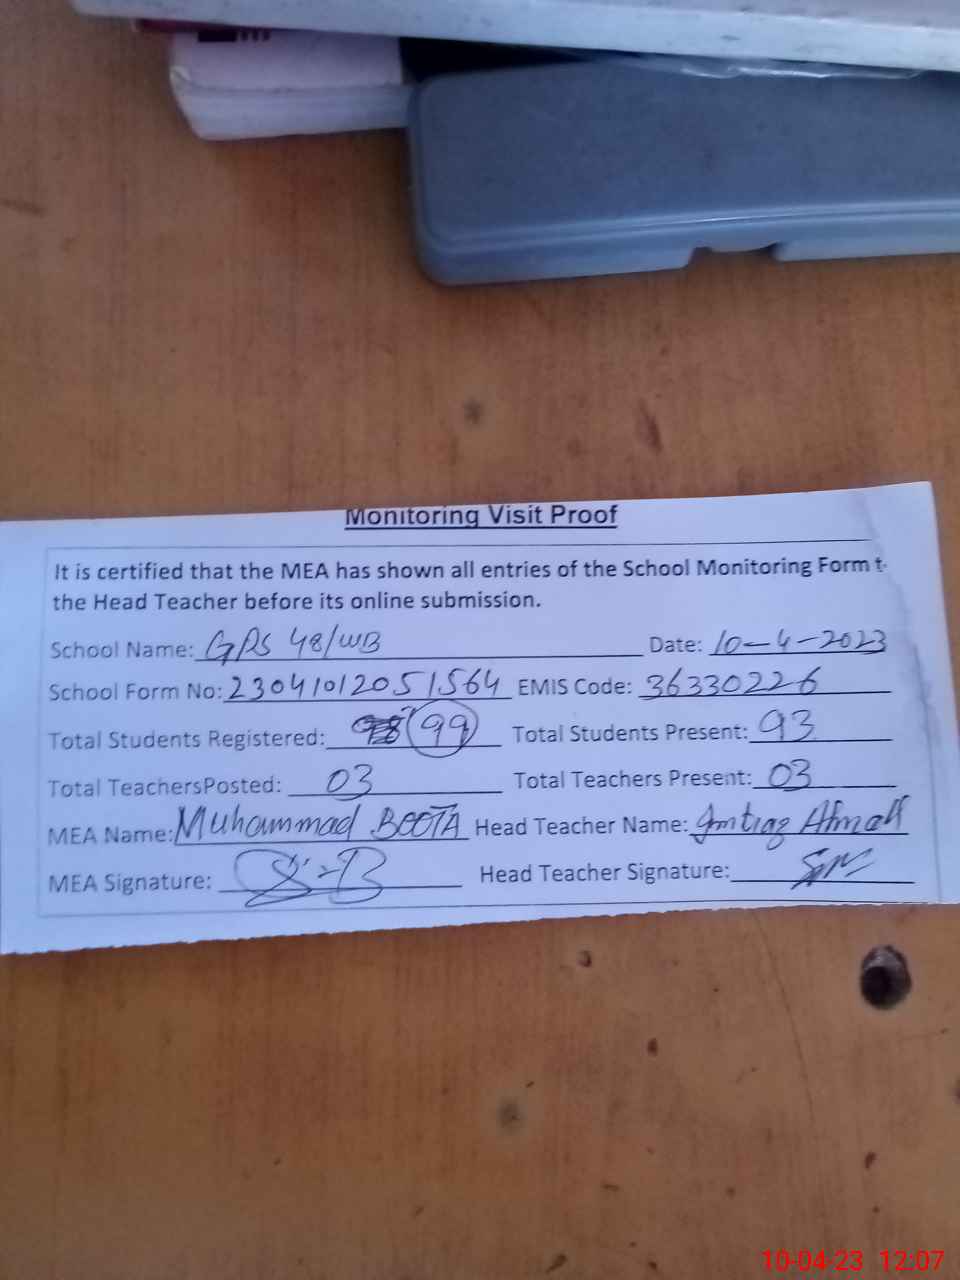 Monitoring Visit Proof
It is certified that the MEA has shown all entries of the School Monitoring Form t
the Head Teacher before its online submission.
School Name: GPS 48/WB Date: 10-4-2023
School Form No: 23041012051564 EMIS Code: 36330226
Total Students Registered: 99 Total Students Present: 93
Total TeachersPosted: 03 Total Teachers Present: 03
MEA Name: Muhammad BOOTA Head Teacher Name: Imtiaz Ahmad
MEA Signature: Head Teacher Signature:
10-04-23 12:07